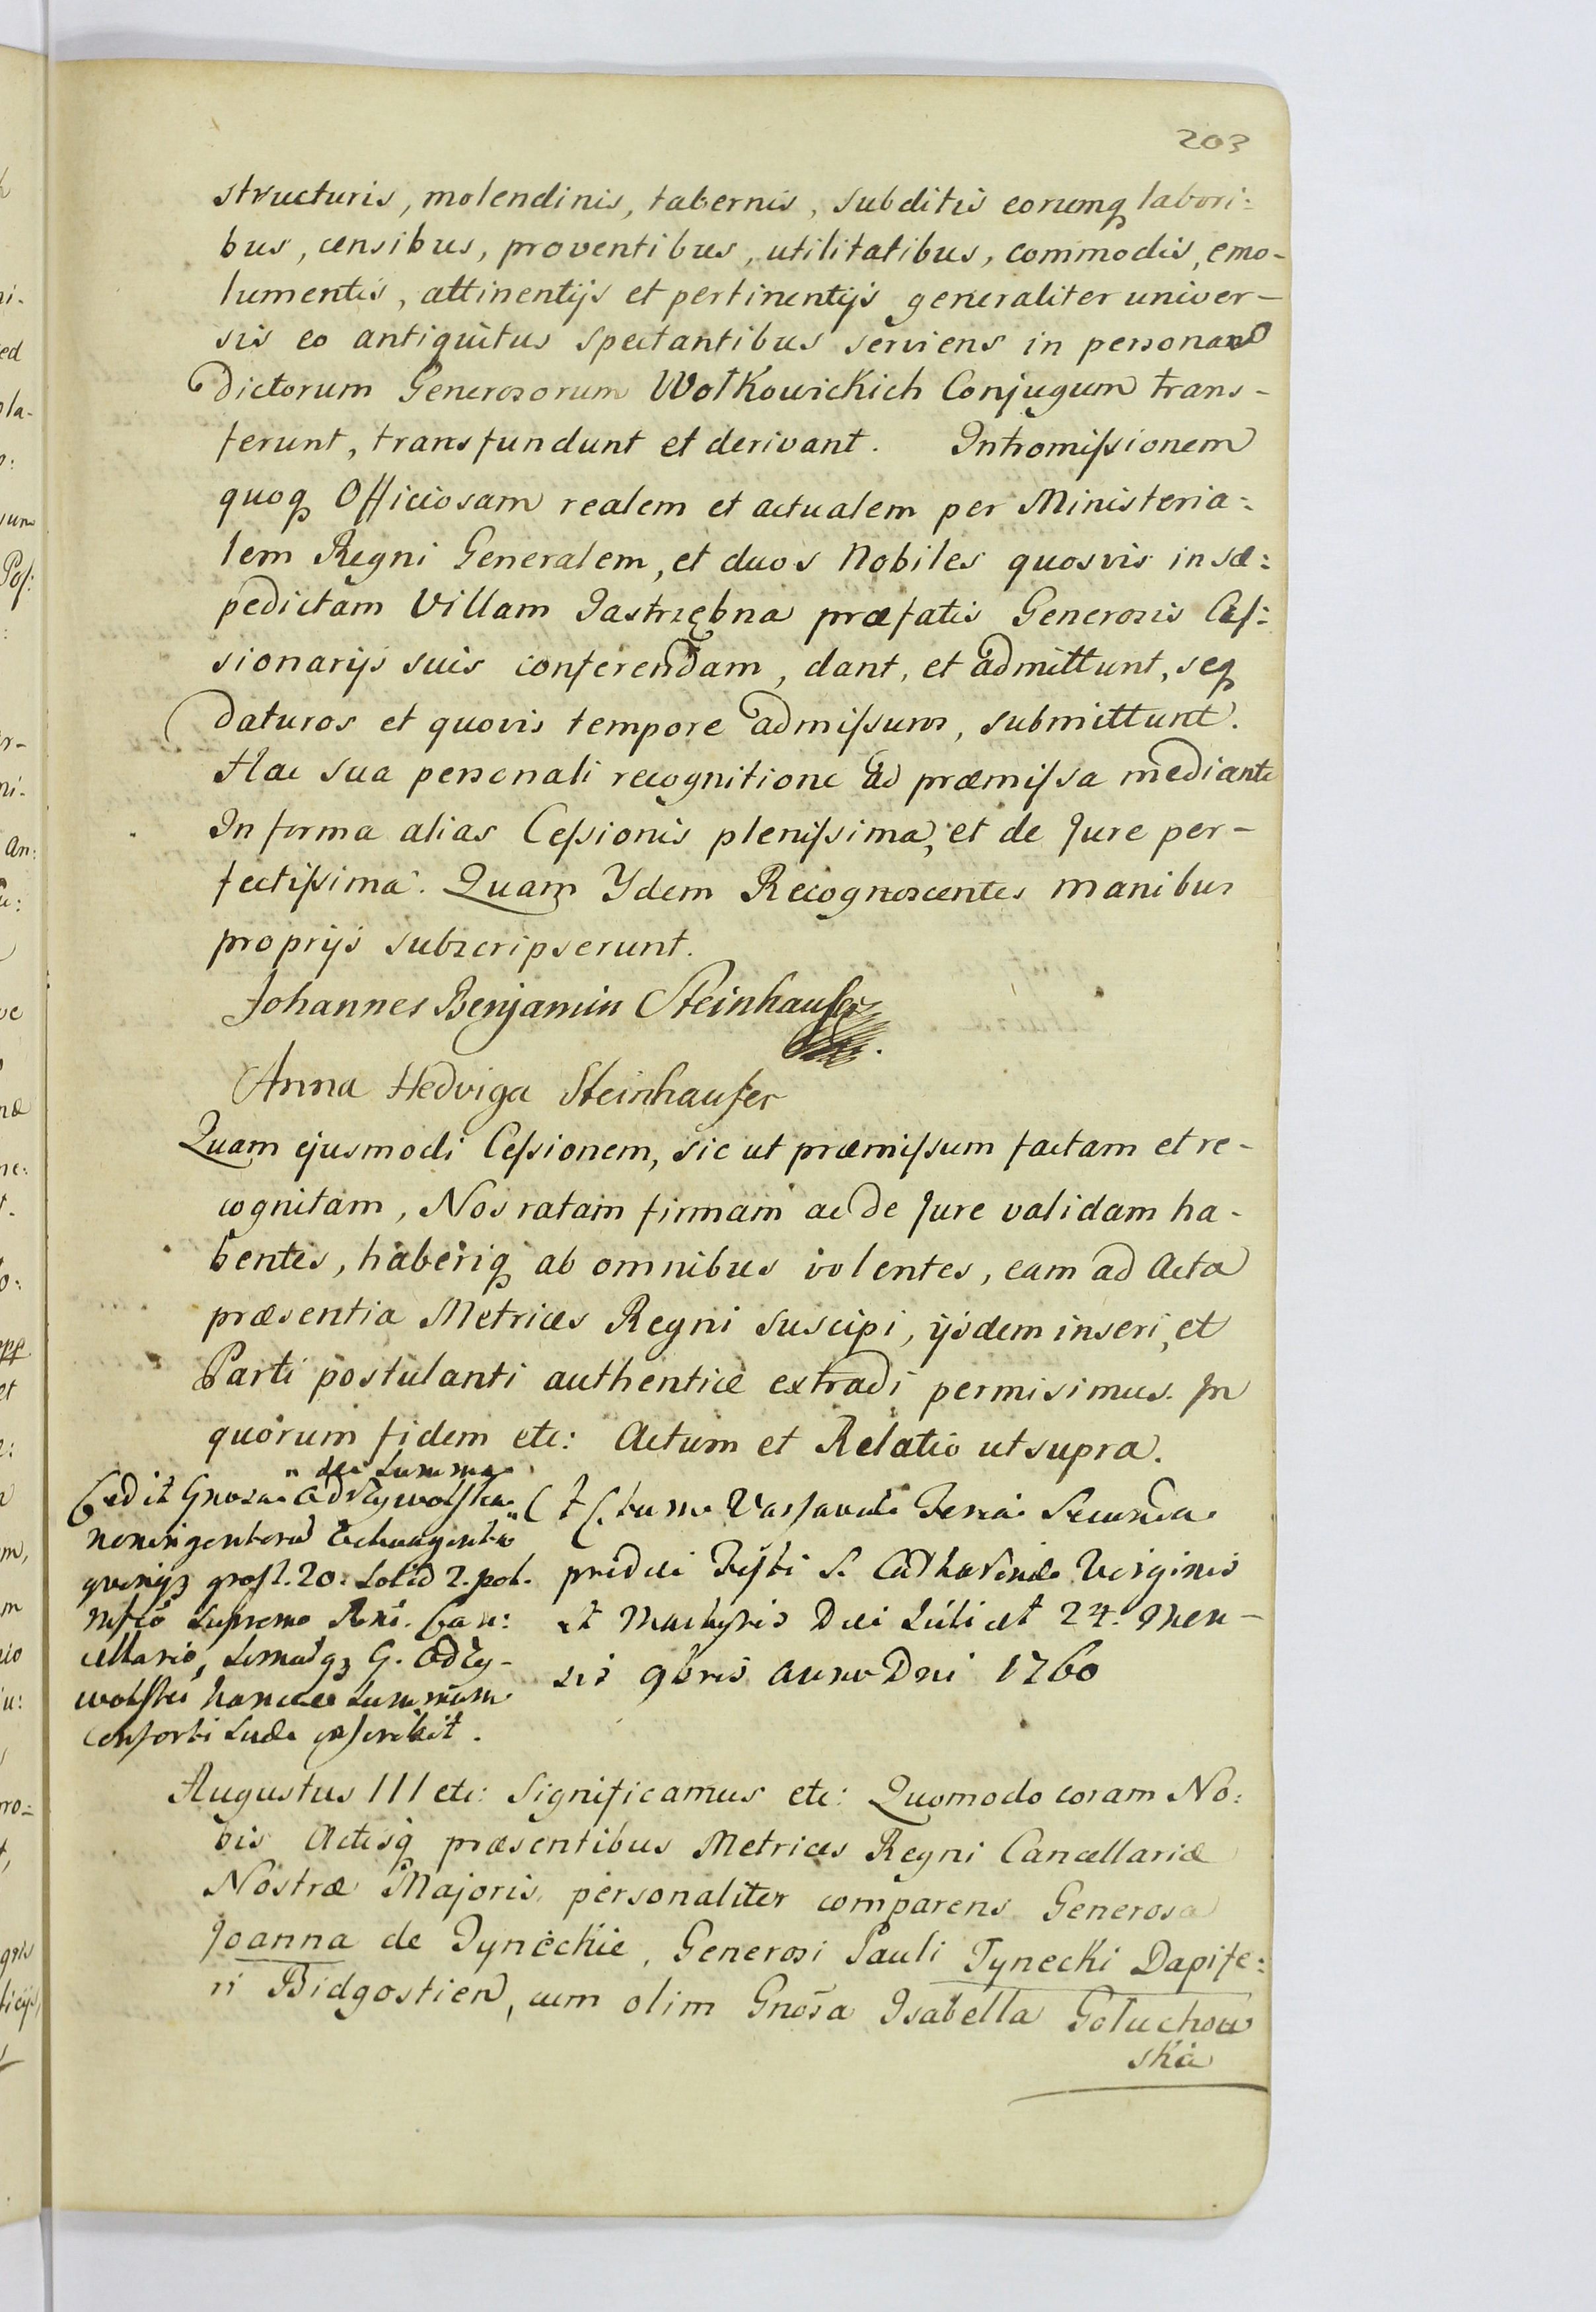 203
structuris, molendinis, tabernis, subditis eorumq labori:
bus, censibus, proventibus, utilitatibus, commodis, emo-
lumentis, attinentijs et pertinentijs generaliter univer-
sis eo antiquitus spectantibus serviens in personas
dictorum Generosorum Wołkowickich Conjugum trans-
ferunt, transfundunt et derivant. Intromissionem
quoq Officiosam realem et actualem per Ministeria:
lem Regni Generalem, et duos Nobiles quosvis in sæ:
pedictam Villam Jastrzębna præfatis Generosis Ces:
sionarijs suis conferendam, dant, et admittunt, seq
daturos et quovis tempore admissuros, submittunt.
Hac sua personali recognitione ad præmissa mediante
In forma alias Cessionis plenissima, et de Jure per-
fectissima. Quam Ydem Recognoscentes manibus
proprijs subscripserunt.
Johannes Benjamin Steinhauser
Anna Hedviga Steinhauser
Quam ejusmodi Cessionem, sic ut præmissum factam et re-
cognitam, Nos ratam firmam ac de Jure validam ha-
bentes, haberiq ab omnibus volentes, eam ad Acta
præsentia Metrices Regni suscipi, ijsdem inseri, et
Parti postulanti authentice extradi permisimus. In
quorum fidem etc: Actum et Relatio ut supra.
Cedit Gnosa Odrzywolska
de Summa
grosz. 20. Solid 2. pol.
Supremo Can:
cellario, G. Odrzy-
wolski hancce Summam
Consorti Suæ
Actum Varsaviæ Feria Secunda
pridie Festi S. Catharinæ Virginis
et Martyris Die scilicet 24. Men-
sis 9bris Anno Dni 1760
Augustus III etc: Significamus etc: Quomodo coram No:
bis Actisq præsentibus Metrices Regni Cancellariæ
Nostræ Majoris, personaliter comparens Generosa
Joanna de Tyneckie, Generosi Pauli Tynecki Dapife:
ri Bidgostien, cum olim Gnosa Isabella Gołuchow
ska